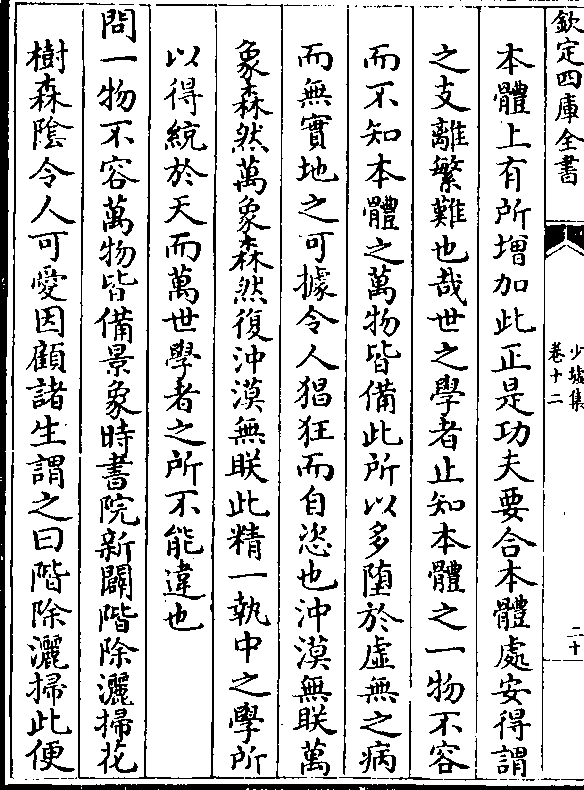 欽定四庫全書
少墟集
卷十二
二十
本體上有所增加此正是功夫要合本體處安得謂
之支離繁難也哉世之學者止知本體之一物不容
而不知本體之萬物皆備此所以多堕於虛無之病
而無實地之可據令人猖狂而自恣也沖漠無朕萬
象森然萬象森然復沖漠無朕此精一執中之學所
以得統於天而萬世學者之所不能違也
問一物不容萬物皆備景象時書院新闢階除灑掃花
樹森陰令人可愛因顧諸生謂之曰階除灑掃此便